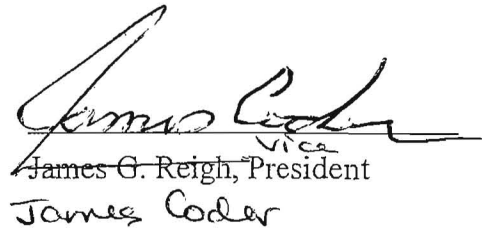 James Coder
Vice
James G. Reigh, President
James Coder